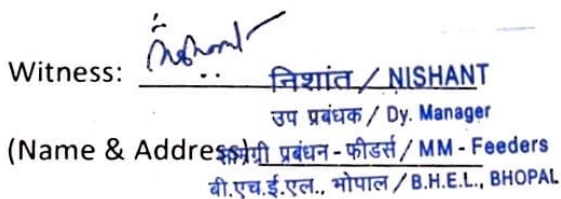 Witness: Nishant
निशांत / NISHANT
उप प्रबंधक / Dy. Manager
(Name & Address) सामग्री प्रबंधन - फीडर्स / MM - Feeders
बी.एच.ई.एल., भोपाल / B.H.E.L., BHOPAL